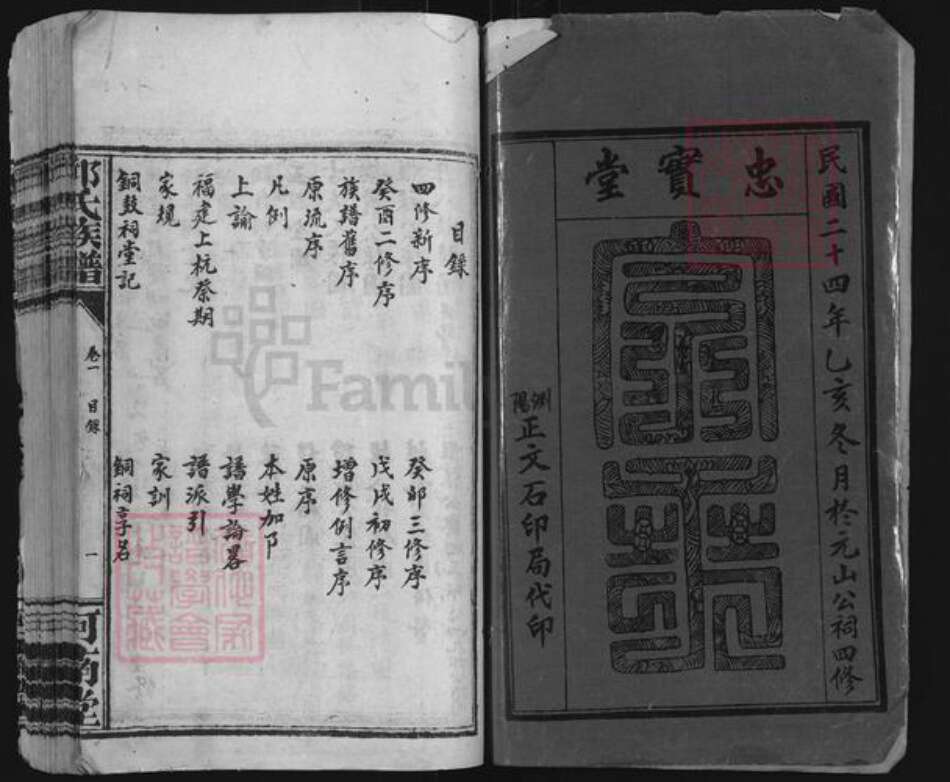 民國二十四年乙亥冬月於元山公祠四修
忠實堂
家乘
瀏陽正文石印局代印
目錄
四修新序
癸卯三修序
癸酉二修序
戊戌初修序
族譜舊序
增修例言序
原流序
原序
凡例
本姓加阝
上諭
譜學論畧
福建上杭祭期
譜派引
家規
家訓
銅鼓祠堂記
銅祠享名
氏族譜
卷一 目錄
一
河南堂
Famil